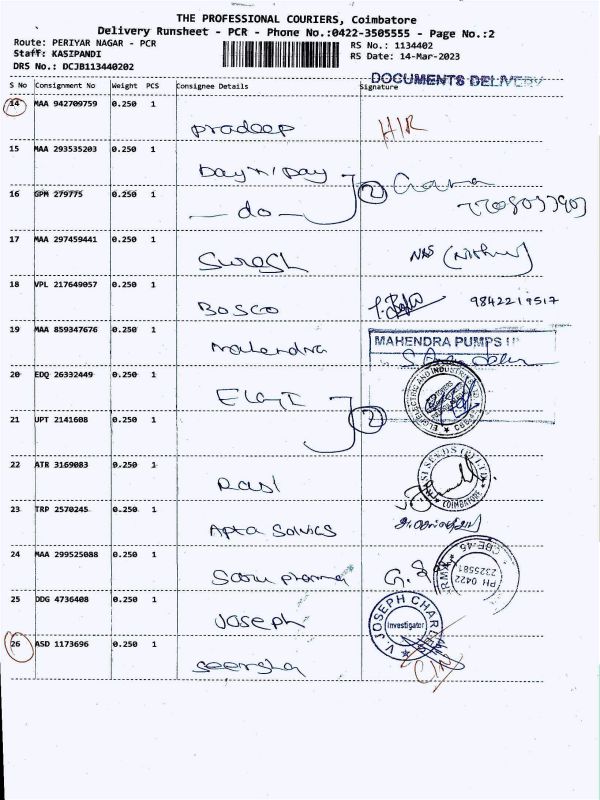 THE PROFESSIONAL COURIERS, Coimbatore
Delivery Runsheet - PCR - Phone No.:0422-3505555 - Page No.:2
Route: PERIYAR NAGAR - PCR
RS No.: 1134402
Staff: KASIPANDI
RS Date: 14-Mar-2023
DRS No.: DCJB113440202
DOCUMENTS DELIVERY
S No Consignment No Weight PCS Consignee Details Signature
14 MAA 942709759 0.250 1
Pradeep H/R
15 MAA 293535203 0.250 1
Day n Day
16 GPM 279775 0.250 1
do 2
17 MAA 297459441 0.250 1
Suresh
18 VPL 217649057 0.250 1
Bosco 9842219517
19 MAA 859347676 0.250 1
Mahendra MAHENDRA PUMPS
20 EDQ 26332449 0.250 1
Elgi
21 UPT 2141608 0.250 1
2
22 ATR 3169083 0.250 1
Rasi COIMBATORE
23 TRP 2570245 0.250 1
Apta Solvics
24 MAA 299525088 0.250 1
Saru pharma PH 0422 2325581
25 DDG 4736408 0.250 1
Joseph V. JOSEPH CHARLES Investigator
26 ASD 1173696 0.250 1
Seersha